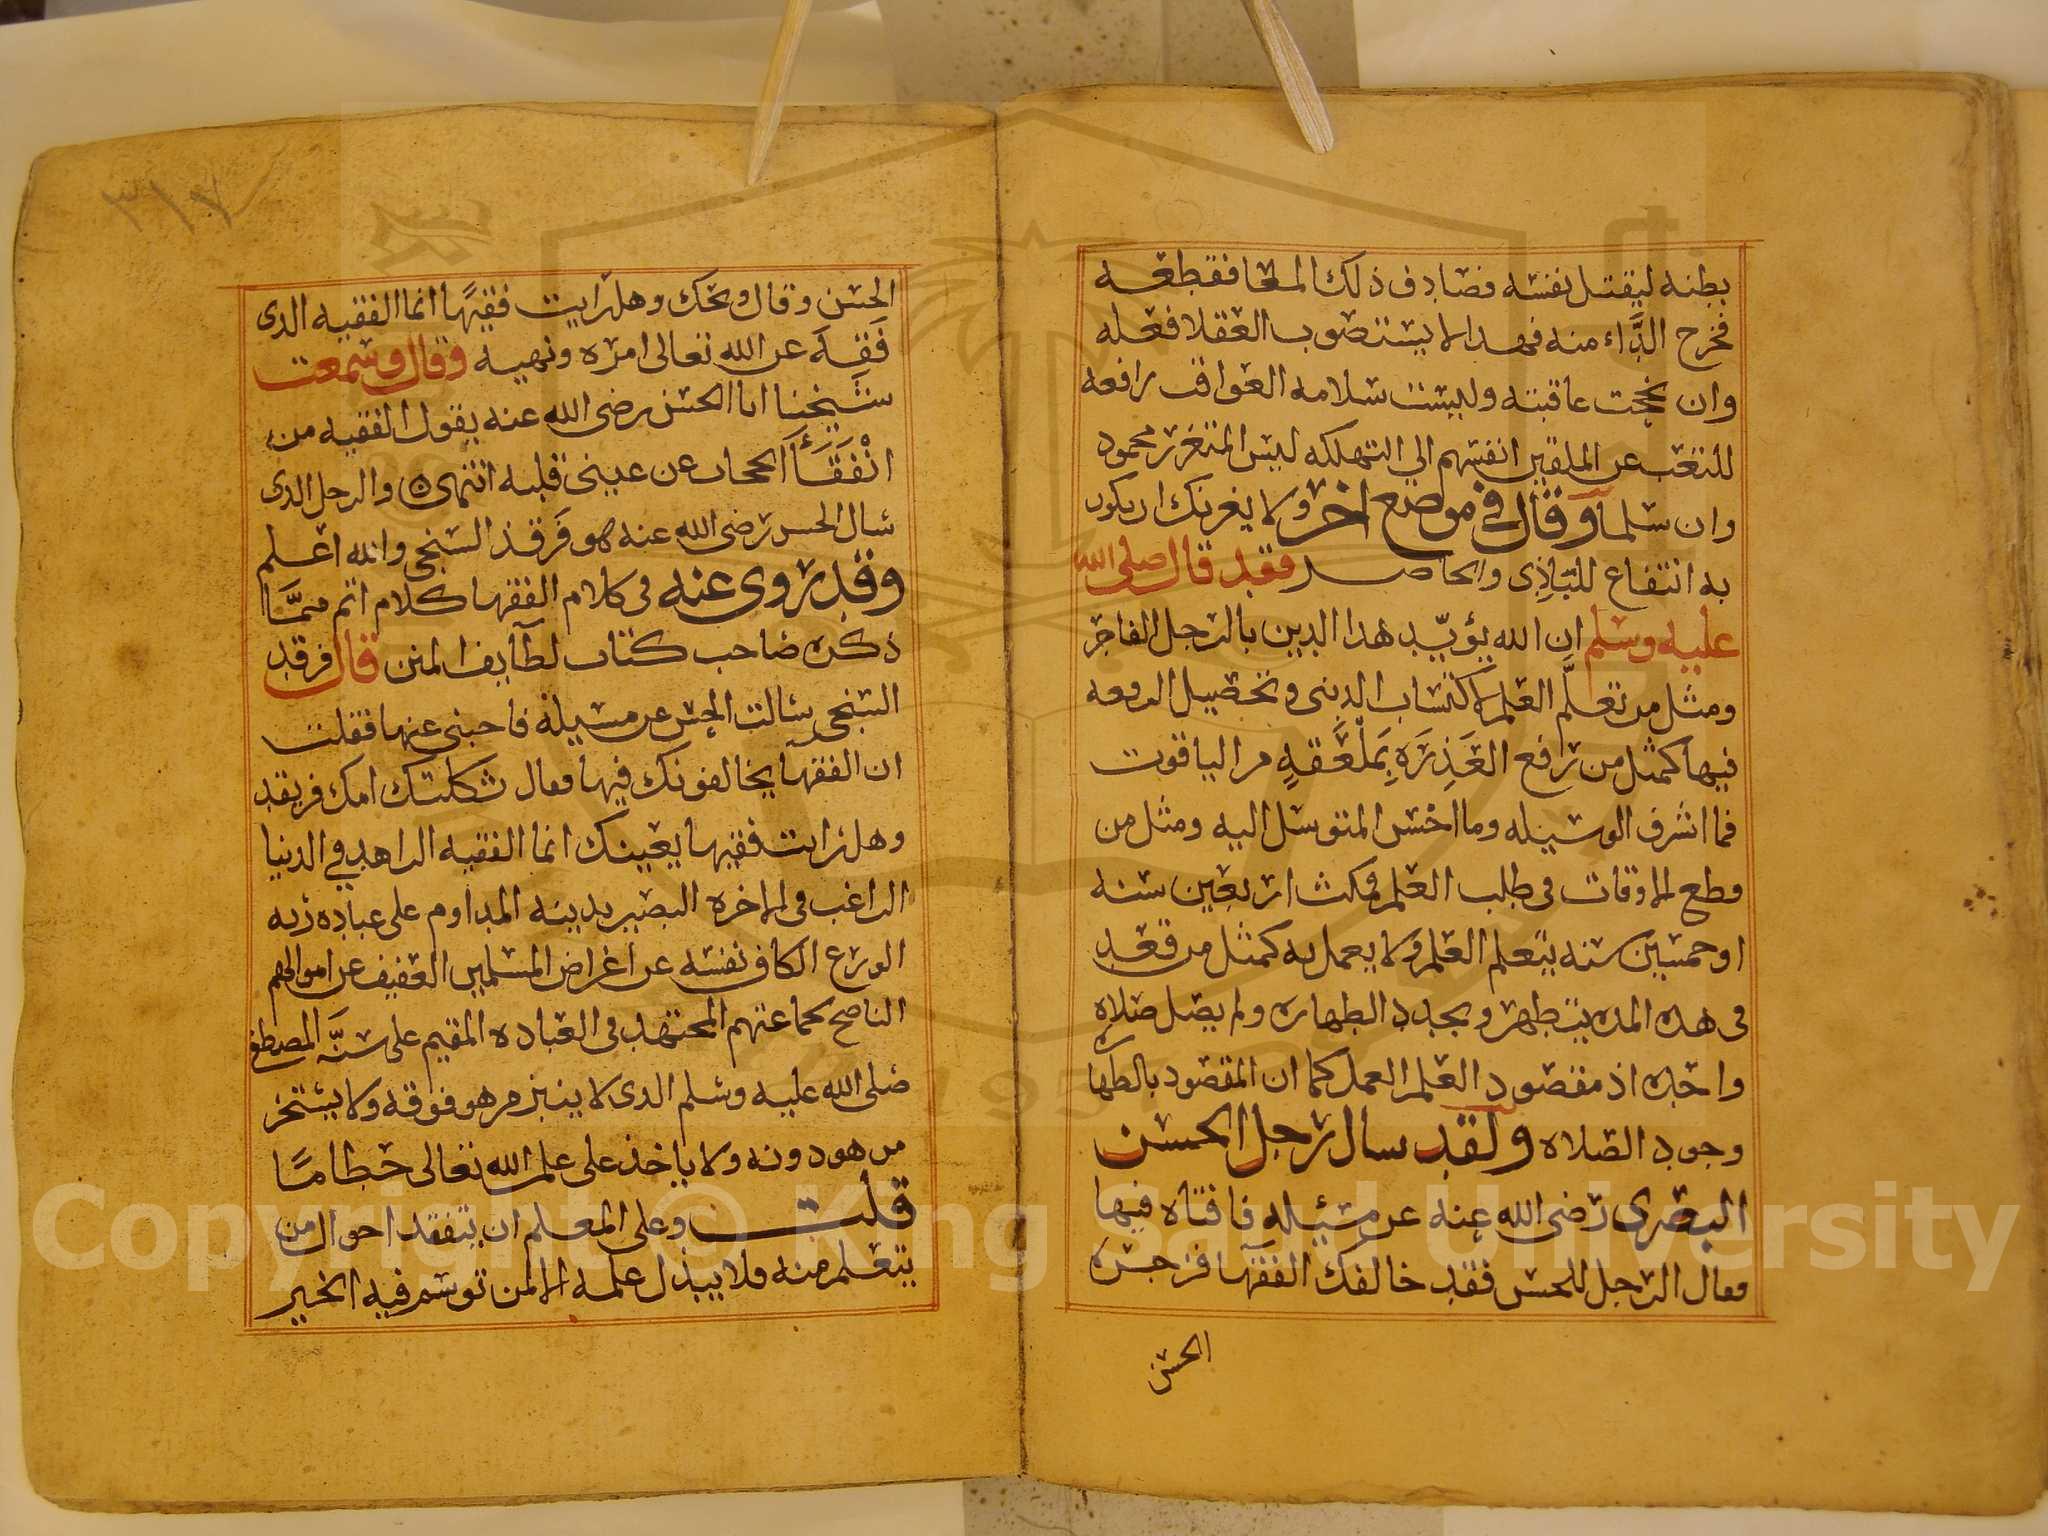 بطنه ليقتل نفسه فصادف ذلك المعا فقطعه
فخرج الدَّاء منه فهدا لا يستصوب العقلا فعله
وان نجحت عاقبته وليست سلامه العواقب رافعه
للتعب عن الملقين انفسهم الي التهلكه ليس المتغرر محمود
وان سلما وقال في موضع اخر ولا يغرنك ان يكون
به انتفاع للبَاذِى والحاضر فقد قال صلى الله
عليه وسلم ان الله يؤيّد هدا الدين بالرجل الفاجر
ومثل من تعلَّم العلم لاكتساب الدنى وتحصيل الرفعه
فيها كمثل من رافع العَذِرَه بِمَلْعَقهٍ من الياقوت
فما اشرف الوسيله وما اخْس المتوسل اليه ومثل من
قطع الاوقات فى طلب العلم فمكث اربعين سنه
او خمسين سنه يتعلم العلم ولا يعمل به كمثل من قعد
فى هده المده يتطهر ويجدد الطهاره ولم يصل صلاه
واحده اذ مقصود العلم العمل كما ان المقصود بالطهاره
وجود الصلاه ولقد سال رجل الحسن
البصرى رضى الله عنه عن مسئله فافتاه فيها
فقال الرجل للحسن فقد خالفك الفقها فزجره
الحسن
٣١٧
الحسن وقال ويحك وهل رايت فقيهًا انما الفقيه الدى
فَقِهَ عن الله تعالى امره ونهيه وقال وسمعت
شيخنا ابا الحسن رضى الله عنه يقول الفقيه من
انْفَقَأَ الحجاب عن عينى قلبه انتهى ⊙ والرجل الدى
سال الحسن رضى الله عنه هو فَرقد السنجى والله اعلم
وقد روى عنه فى كلام الفقها كلام اتم ممَّا
ذكره صاحب كتاب لطايف المنن قال فرقد
السنجى سالت الحسن عن مسيلة فاجبنى عنها فقلت
ان الفقها يخالفونك فيها فقال ثكلتك امك فريقد
وهل رايت فقيها بعينك انما الفقيه الزاهد في الدنيا
الراغب فى الاخره البصير بدينه المداوم على عباده ربه
الورع الكاف نفسه عن اغراض المسلمين العفيف عن اموالهم
الناصح بجماعتهم المجتهد فى العباده المقيم على سنَّه المصطفى
صلى الله عليه وسلم الدى لا ينبز من هو فوقه ولا يسخر
من هو دونه ولا ياخذ على علم الله تعالى حطامًا
قلت وعلى المعلم ان يتفقد احوال من
يتعلم منه فلا يبذل علمه الا لمن توسم فيه الخير
Copyright © King Saud University